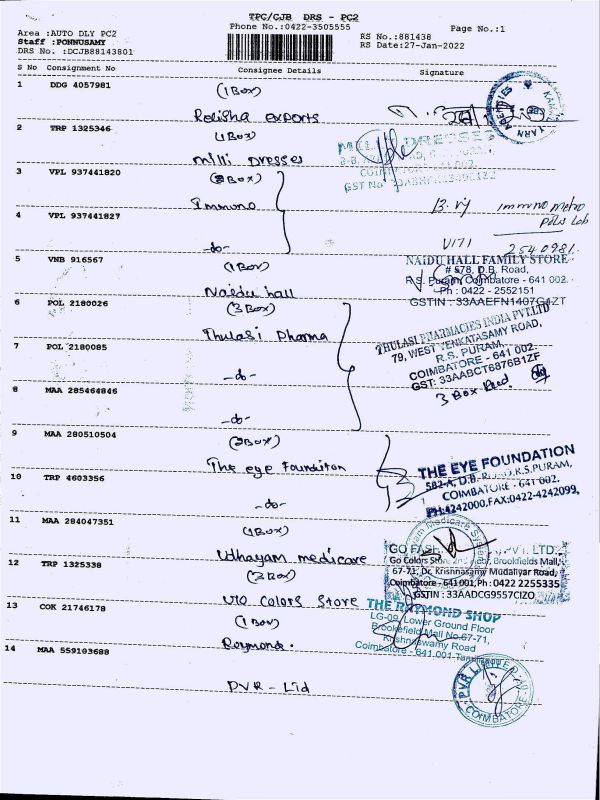 TPC/CJB DRS - PC2
Phone No.:0422-3505555
Page No.:1
Area :AUTO DLY PC2
Staff :PONNUSAMY
DRS No. :DCJB88143801
RS No.:881438
RS Date:27-Jan-2022
S No Consignment No Consignee Details Signature
(1 Box)
1 DDG 4057981
Relisha exports
(1 Box)
2 TRP 1325346
milli Dresses
3 VPL 937441820
Immuno
B. vij Immuno Metro
Polis Lab
4 VPL 937441827
-do-
V171 2540981
5 VNB 916567
(1 Box)
Naidu hall
NAIDU HALL FAMILY STORE
# 578, D.B. Road,
R.S. Puram, Coimbatore - 641 002.
Ph : 0422 - 2552151
GSTIN : 33AAEFN1407G1ZT
6 POL 2180026
(3 Box)
Thulasi Pharma
THULASI PHARMACIES INDIA PVT.LTD
79, WEST VENKATASAMY ROAD,
R.S. PURAM,
COIMBATORE - 641 002.
GST: 33AABCT6876B1ZF
3 Box Recd.
7 POL 2180085
-do-
8 MAA 285464846
-do-
9 MAA 280510504
(2 Box)
The eye Foundation
THE EYE FOUNDATION
582-A, D.B. ROAD, R.S.PURAM,
COIMBATORE - 641 002.
PH:4242000,FAX:0422-4242099,
10 TRP 4603356
-do-
11 MAA 284047351
(1 Box)
Udhayam medicare
12 TRP 1325338
(3 Box)
Go Colors Store, Brookfields Mall,
67-71, Dr. Krishnasamy Mudaliyar Road,
Coimbatore - 641001, Ph : 0422 2255335
GSTIN : 33AADCG9557C1ZO
Colors Store
13 COK 21746178
(1 Box)
Raymond.
THE RAYMOND SHOP
LG-09, Lower Ground Floor
Brookefield Mall No.67-71,
Krishnaswamy Road
Coimbatore - 641 001
14 MAA 559103688
PVR - Ltd
PVR LIMITED
COIMBATORE